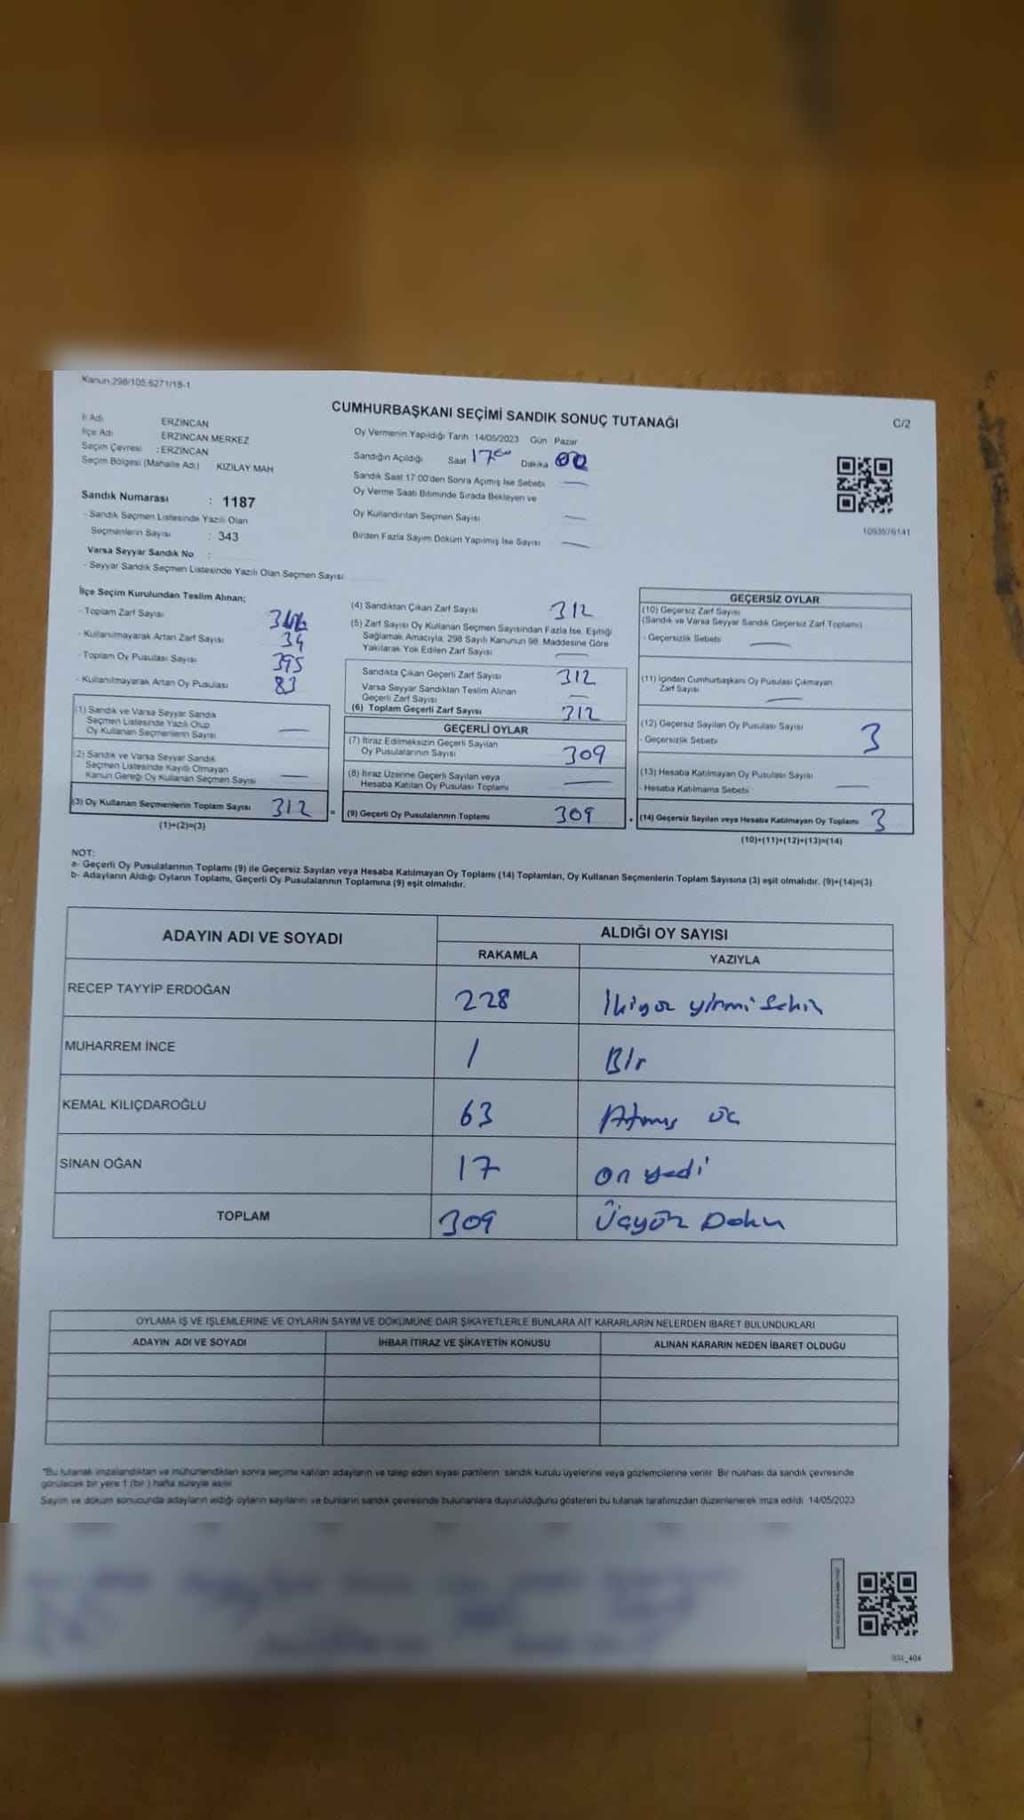 Kanun:298/105,6271/18-1
CUMHURBAŞKANI SEÇİMİ SANDIK SONUÇ TUTANAĞI
C/2
İl Adı : ERZİNCAN
İlçe Adı : ERZİNCAN MERKEZ
Seçim Çevresi : ERZİNCAN
Seçim Bölgesi (Mahalle Adı) KIZILAY MAH
Sandık Numarası : 1187
- Sandık Seçmen Listesinde Yazılı Olan
Seçmenlerin Sayısı : 343
Varsa Seyyar Sandık No :
- Seyyar Sandık Seçmen Listesinde Yazılı Olan Seçmen Sayısı:
Oy Vermenin Yapıldığı Tarih: 14/05/2023 Gün Pazar
Sandığın Açıldığı Saat 17 Dakika 00
Sandık Saat 17:00'den Sonra Açımış İse Sebebi —
Oy Verme Saati Bitiminde Sırada Bekleyen ve
Oy Kullandırılan Seçmen Sayısı —
Birden Fazla Sayım Döküm Yapılmış İse Sayısı —
1093576141
İlçe Seçim Kurulundan Teslim Alınan;
- Toplam Zarf Sayısı
- Kullanılmayarak Artan Zarf Sayısı 34
- Toplam Oy Pusulası Sayısı 395
- Kullanılmayarak Artan Oy Pusulası 83
(1) Sandık ve Varsa Seyyar Sandık
Seçmen Listesinde Yazılı Olup
Oy Kullanan Seçmenlerin Sayısı —
(2) Sandık ve Varsa Seyyar Sandık
Seçmen Listesinde Kayıtlı Olmayan
Kanun Gereği Oy Kullanan Seçmen Sayısı —
(3) Oy Kullanan Seçmenlerin Toplam Sayısı 312 =
(1)+(2)=(3)
(4) Sandıktan Çıkan Zarf Sayısı 312
(5) Zarf Sayısı Oy Kullanan Seçmen Sayısından Fazla İse, Eşitliği
Sağlamak Amacıyla, 298 Sayılı Kanunun 98. Maddesine Göre
Yakılarak Yok Edilen Zarf Sayısı —
Sandıkta Çıkan Geçerli Zarf Sayısı 312
Varsa Seyyar Sandıktan Teslim Alınan
Geçerli Zarf Sayısı —
(6) Toplam Geçerli Zarf Sayısı 312
GEÇERLİ OYLAR
(7) İtiraz Edilmeksizin Geçerli Sayılan
Oy Pusulalarının Sayısı 309
(8) İtiraz Üzerine Geçerli Sayılan veya
Hesaba Katılan Oy Pusulası Toplamı —
(9) Geçerli Oy Pusulalarının Toplamı 309 +
GEÇERSİZ OYLAR
(10) Geçersiz Zarf Sayısı
(Sandık ve Varsa Seyyar Sandık Geçersiz Zarf Toplamı)
- Geçersizlik Sebebi —
(11) İçinden Cumhurbaşkanı Oy Pusulası Çıkmayan
Zarf Sayısı —
(12) Geçersiz Sayılan Oy Pusulası Sayısı 3
- Geçersizlik Sebebi
(13) Hesaba Katılmayan Oy Pusulası Sayısı —
- Hesaba Katılmama Sebebi
(14) Geçersiz Sayılan veya Hesaba Katılmayan Oy Toplamı 3
(10)+(11)+(12)+(13)=(14)
NOT:
a- Geçerli Oy Pusulalarının Toplamı (9) ile Geçersiz Sayılan veya Hesaba Katılmayan Oy Toplamı (14) Toplamları, Oy Kullanan Seçmenlerin Toplam Sayısına (3) eşit olmalıdır. (9)+(14)=(3)
b- Adayların Aldığı Oyların Toplamı, Geçerli Oy Pusulalarının Toplamına (9) eşit olmalıdır.
ADAYIN ADI VE SOYADI ALDIĞI OY SAYISI
RAKAMLA YAZIYLA
RECEP TAYYİP ERDOĞAN 228 İkiyüz yirmi sekiz
MUHARREM İNCE 1 Bir
KEMAL KILIÇDAROĞLU 63 Atmış üç
SİNAN OĞAN 17 on yedi
TOPLAM 309 Üçyüz Doku
OYLAMA İŞ VE İŞLEMLERİNE VE OYLARIN SAYIM VE DÖKÜMÜNE DAİR ŞİKAYETLERLE BUNLARA AİT KARARLARIN NELERDEN İBARET BULUNDUKLARI
ADAYIN ADI VE SOYADI İHBAR İTİRAZ VE ŞİKAYETİN KONUSU ALINAN KARARIN NEDEN İBARET OLDUĞU
*Bu tutanak imzalandıktan ve mühürlendikten sonra seçime katılan adayların ve talep eden siyasi partilerin sandık kurulu üyelerine veya gözlemcilerine verilir. Bir nüshası da sandık çevresinde
görülecek bir yere 1 (bir ) hafta süreyle asılır.
Sayım ve döküm sonucunda adayların aldığı oyların sayılarını ve bunların sandık çevresinde bulunanlara duyurulduğunu gösteren bu tutanak tarafımızdan düzenlenerek imza edildi. 14/05/2023